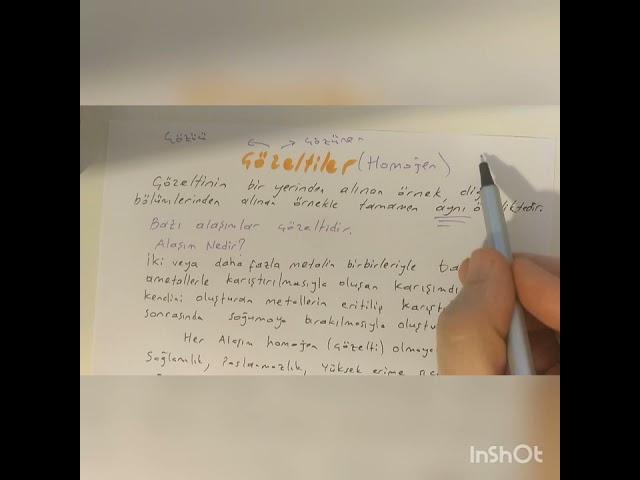 Çözücü Çözünen
Çözeltiler (Homojen)
Çözeltinin bir yerinden alınan örnek,
bölümlerinden alınan örnekle tamamen aynı
Bazı alaşımlar çözeltidir.
Alaşım Nedir?
İki veya daha fazla metalin birbirleriyle
ametallerle karıştırılmasıyla oluşan
kendini oluşturan metallerin eritilip
sonrasında soğumaya bırakılmasıyla
Her Alaşım homojen (çözelti)
Sağlamlık, Paslanmazlık, Yüksek erime
InShOt